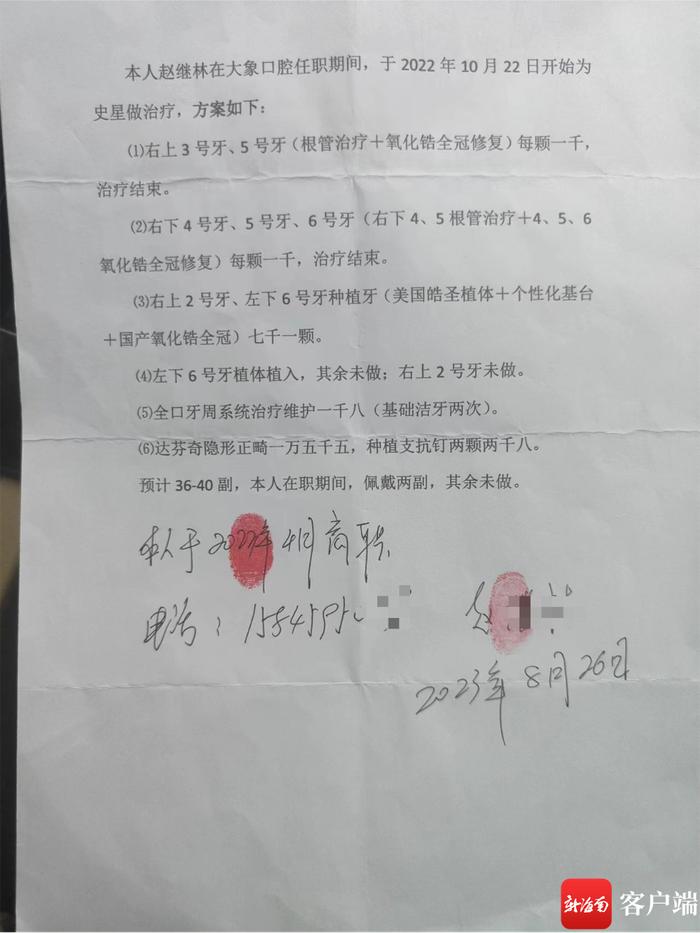 本人赵继林在大象口腔任职期间，于 2022 年 10 月 22 日开始为
史星做治疗，方案如下：
⑴右上 3 号牙、5 号牙（根管治疗＋氧化锆全冠修复）每颗一千，
治疗结束。
⑵右下 4 号牙、5 号牙、6 号牙（右下 4、5 根管治疗＋4、5、6
氧化锆全冠修复）每颗一千，治疗结束。
⑶右上 2 号牙、左下 6 号牙种植牙（美国皓圣植体＋个性化基台
＋国产氧化锆全冠）七千一颗。
⑷左下 6 号牙植体植入，其余未做；右上 2 号牙未做。
⑸全口牙周系统治疗维护一千八（基础洁牙两次）。
⑹达芬奇隐形正畸一万五千五，种植支抗钉两颗两千八。
预计 36-40 副，本人在职期间，佩戴两副，其余未做。
本人于 2023年 4月 离职
电话：1554595
2023年 8月 26日
新海南 客户端